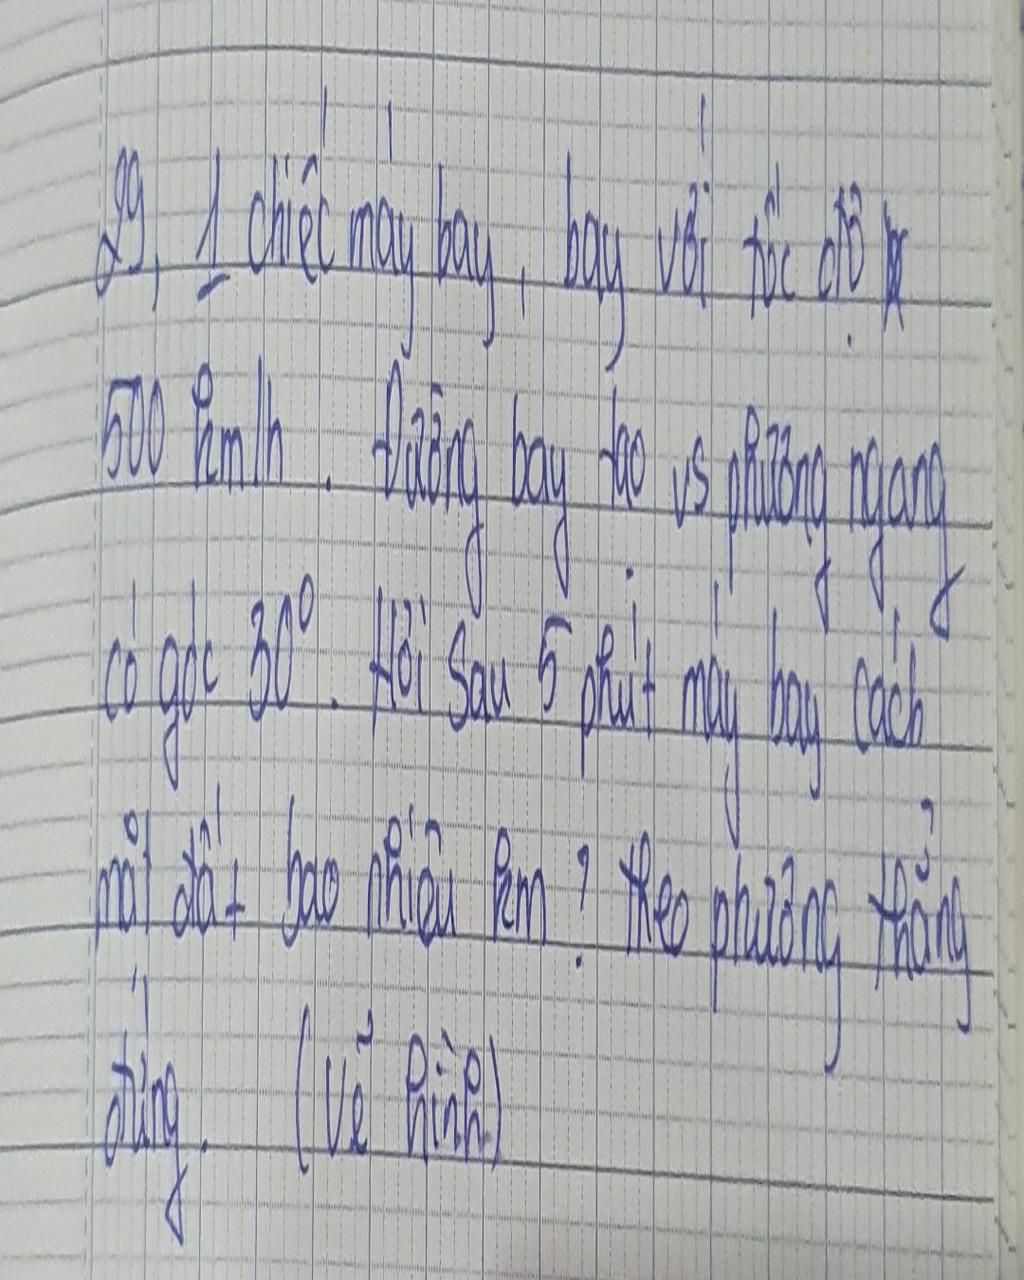 29, 1 chiếc máy bay, bay với tốc độ
500 km/h. Đường bay tạo vs phương ngang
có góc 30°. Hỏi Sau 5 phút máy bay cách
mặt đất bao nhiêu km? theo phương thẳng
đứng. (vẽ hình)